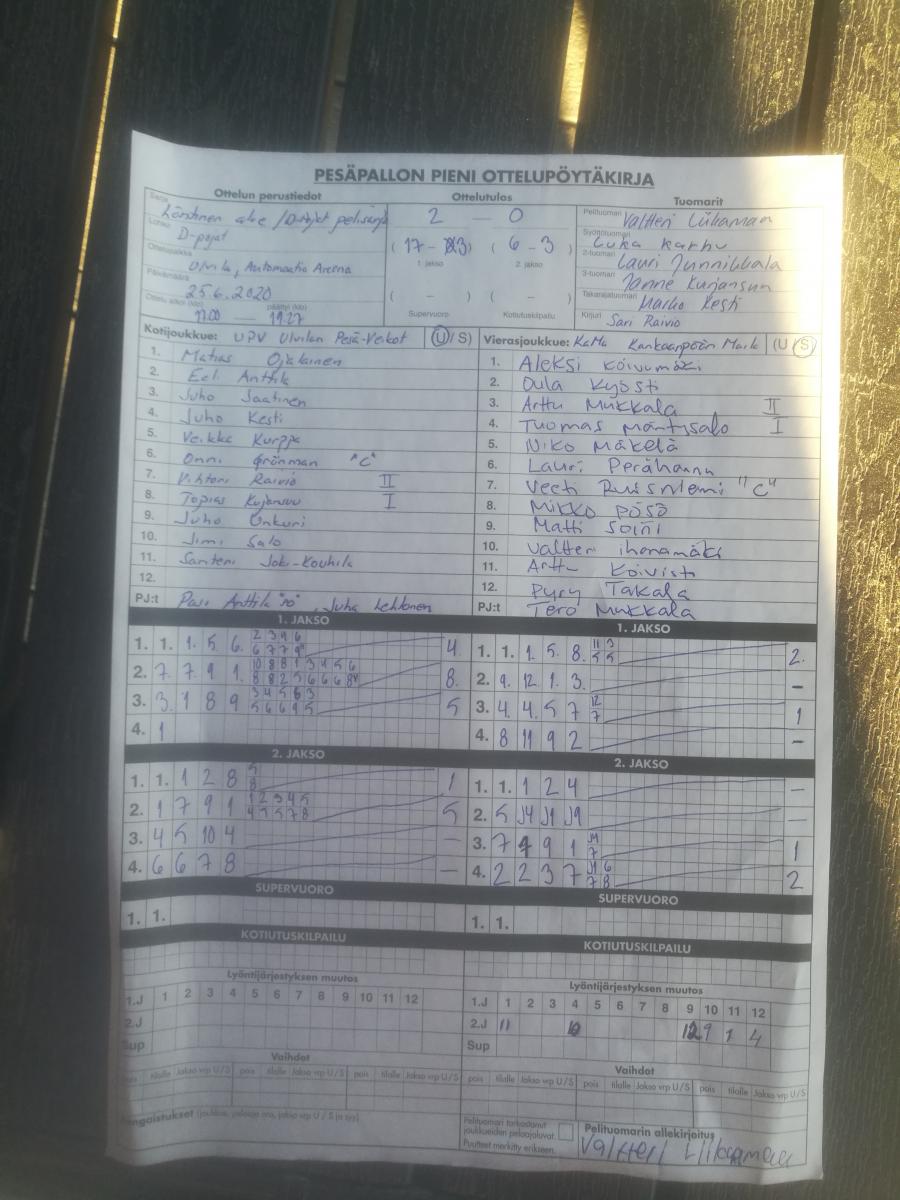 PESÄPALLON PIENI OTTELUPÖYTÄKIRJA
Ottelun perustiedot
Ottelutulos
Tuomarit
Sarja
Läntinen alue / D-pojat
Lohko D-pojat
Ottelupaikka Ulvila, Automaatio Areena
Päivämäärä 25.6.2020
Ottelu alkoi (klo) 17.00 — päättyi (klo) 19.27
2 — 0
(17 - 3) (6 - 3)
1. jakso 2. jakso
( - ) ( - )
Supervuoro Kotiutuskilpailu
Pelituomari Valtteri Liikamaa
Syöttötuomari Luka Karhu
2-tuomari Lauri Junnikkala
3-tuomari Janne Kujansuu
Takarajatuomari Marko Kesti
Kirjuri Sari Raivio
Kotijoukkue: UPV Ulvilan Pesä-Veikot (U/S)
1. Matias Ojalainen
2. Eeli Anttila
3. Juho Saatinen
4. Juho Kesti
5. Veikka Kurppa
6. Onni Grönman "C"
7. Vihtori Raivio II
8. Topias Kujansuu I
9. Juho Onkuri
10. Jimi Salo
11. Santeri Joki-Kouhila
12.
PJ:t Pasi Anttila "PJ", Juha Lehtonen
Vierasjoukkue: KaMa Kankaanpään Maila (U/S)
1. Aleksi Koivumäki
2. Oula Kyösti
3. Arttu Mukkala II
4. Tuomas Mäntysalo I
5. Niko Mäkelä
6. Lauri Perähannu
7. Veeti Ruisniemi "C"
8. Mikko Pösö
9. Matti Soini
10. Valtteri Ihanamäki
11. Arttu Koivisto
12. Pyry Takala
PJ:t Tero Mukkala
1. JAKSO
1. 1. 1. 5 6. 2 3 4 6 4
6 7 7 9
2. 7. 7 9 1. 10 8 8 1 3 4 5 6 8.
8 8 2 5 6 6 6 8
3. 3. 1 8 9 3 4 5 6 3 5
5 6 6 9 5
4. 1
1. JAKSO
1. 1. 1. 5. 8. 11 3 2.
5 5
2. 9. 12 1. 3. -
3. 4. 4. 5 7 12 1
7
4. 8 11 9 2 -
2. JAKSO
1. 1. 1 2 8 5 1
8
2. 1 7 9 1 1 2 3 4 5 5
4 5 5 7 8
3. 4 5 10 4 -
4. 6 6 7 8 -
2. JAKSO
1. 1. 1 2 4 -
2. 5 J4 J1 J9 -
3. 7 9 1 J4 1
7
4. 2 2 3 7 J1 6 2
7 8
SUPERVUORO
1. 1.
SUPERVUORO
1. 1.
KOTIUTUSKILPAILU
KOTIUTUSKILPAILU
Lyöntijärjestyksen muutos
1.J 1 2 3 4 5 6 7 8 9 10 11 12
2.J
Sup
Lyöntijärjestyksen muutos
1.J 1 2 3 4 5 6 7 8 9 10 11 12
2.J 11 12 9 1 4
Sup
Vaihdot
pois tilalle Jakso vrp U/S pois tilalle Jakso vrp U/S pois tilalle Jakso vrp U/S
Vaihdot
pois tilalle Jakso vrp U/S pois tilalle Jakso vrp U/S pois tilalle Jakso vrp U/S
Rangaistukset (joukkue, pelaaja nro, jakso vrp U / S ja syy)
Pelituomari tarkastanut
joukkueiden pelaajaluvat.
Puutteet merkitty erikseen.
Pelituomarin allekirjoitus
Valtteri Liikamaa